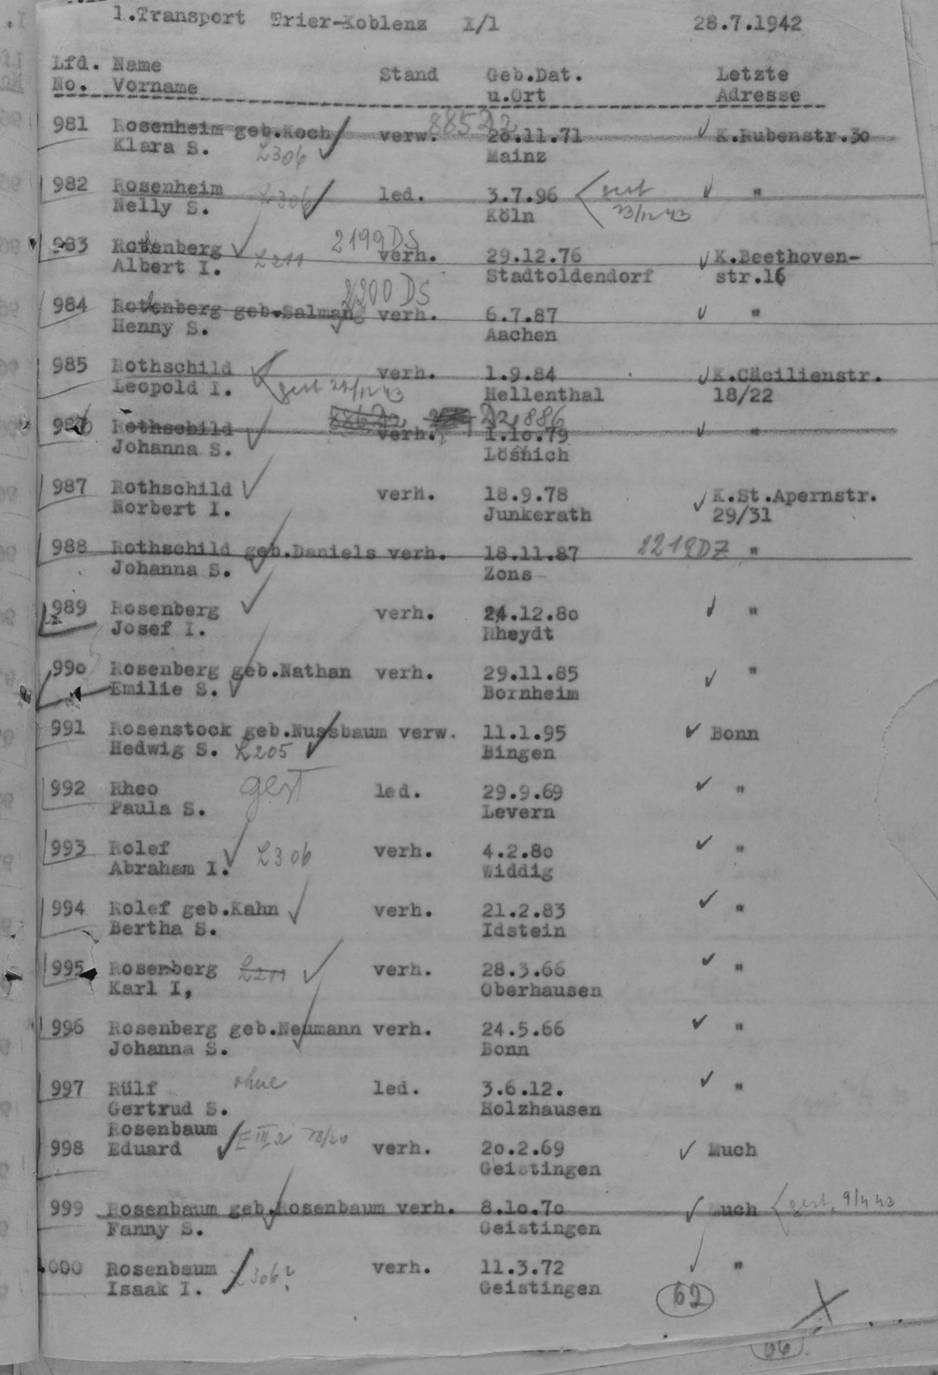 1.Transport Trier-Koblenz X/1 28.7.1942
Lfd. Name Stand Geb.Dat. Letzte
No. Vorname u.Ort Adresse
981 Rosenheim geb.Koch verw. 885 D2 26.11.71 K.Rubenstr.30
Klara S. L306 Mainz
982 Rosenheim L306 led. 3.7.96 gest "
Nelly S. Köln 23/IV 43
983 Rotenberg 2199 DS verh. 29.12.76 K.Beethoven-
Albert I. L211 Stadtoldendorf str.16
984 Rotenberg geb.Salmang 2200 DS verh. 6.7.87 "
Henny S. Aachen
985 Rothschild verh. 1.9.84 K.Cäcilienstr.
Leopold I. gest Hellenthal 18/22
986 Rothschild verh. D2, 886 1.10.79 "
Johanna S. Lösnich
987 Rothschild verh. 18.9.78 K.St.Apernstr.
Norbert I. Junkerath 29/31
988 Rothschild geb.Daniels verh. 18.11.87 "
Johanna S. Zons
989 Rosenberg verh. 24.12.80 "
Josef I. Rheydt
990 Rosenberg geb.Nathan verh. 29.11.85 "
Emilie S. Bornheim
991 Rosenstock geb.Nussbaum verw. 11.1.95 Bonn
Hedwig S. L205 Bingen
992 Rheo gest led. 29.9.69 "
Paula S. Levern
993 Rolef verh. 4.2.80 "
Abraham I. L306 Widdig
994 Rolef geb.Kahn verh. 21.2.83 "
Bertha S. Idstein
995 Rosenberg L211 verh. 28.3.66 "
Karl I, Oberhausen
996 Rosenberg geb.Neumann verh. 24.5.66 "
Johanna S. Bonn
997 Rülf ohne led. 3.6.12. "
Gertrud S. Holzhausen
Rosenbaum
998 Eduard verh. 20.2.69 Much
Geistingen
999 Rosenbaum geb.Rosenbaum verh. 8.10.70 Much gest. 9/4 43
Fanny S. Geistingen
1000 Rosenbaum L306? verh. 11.3.72 "
Isaak I. Geistingen
62